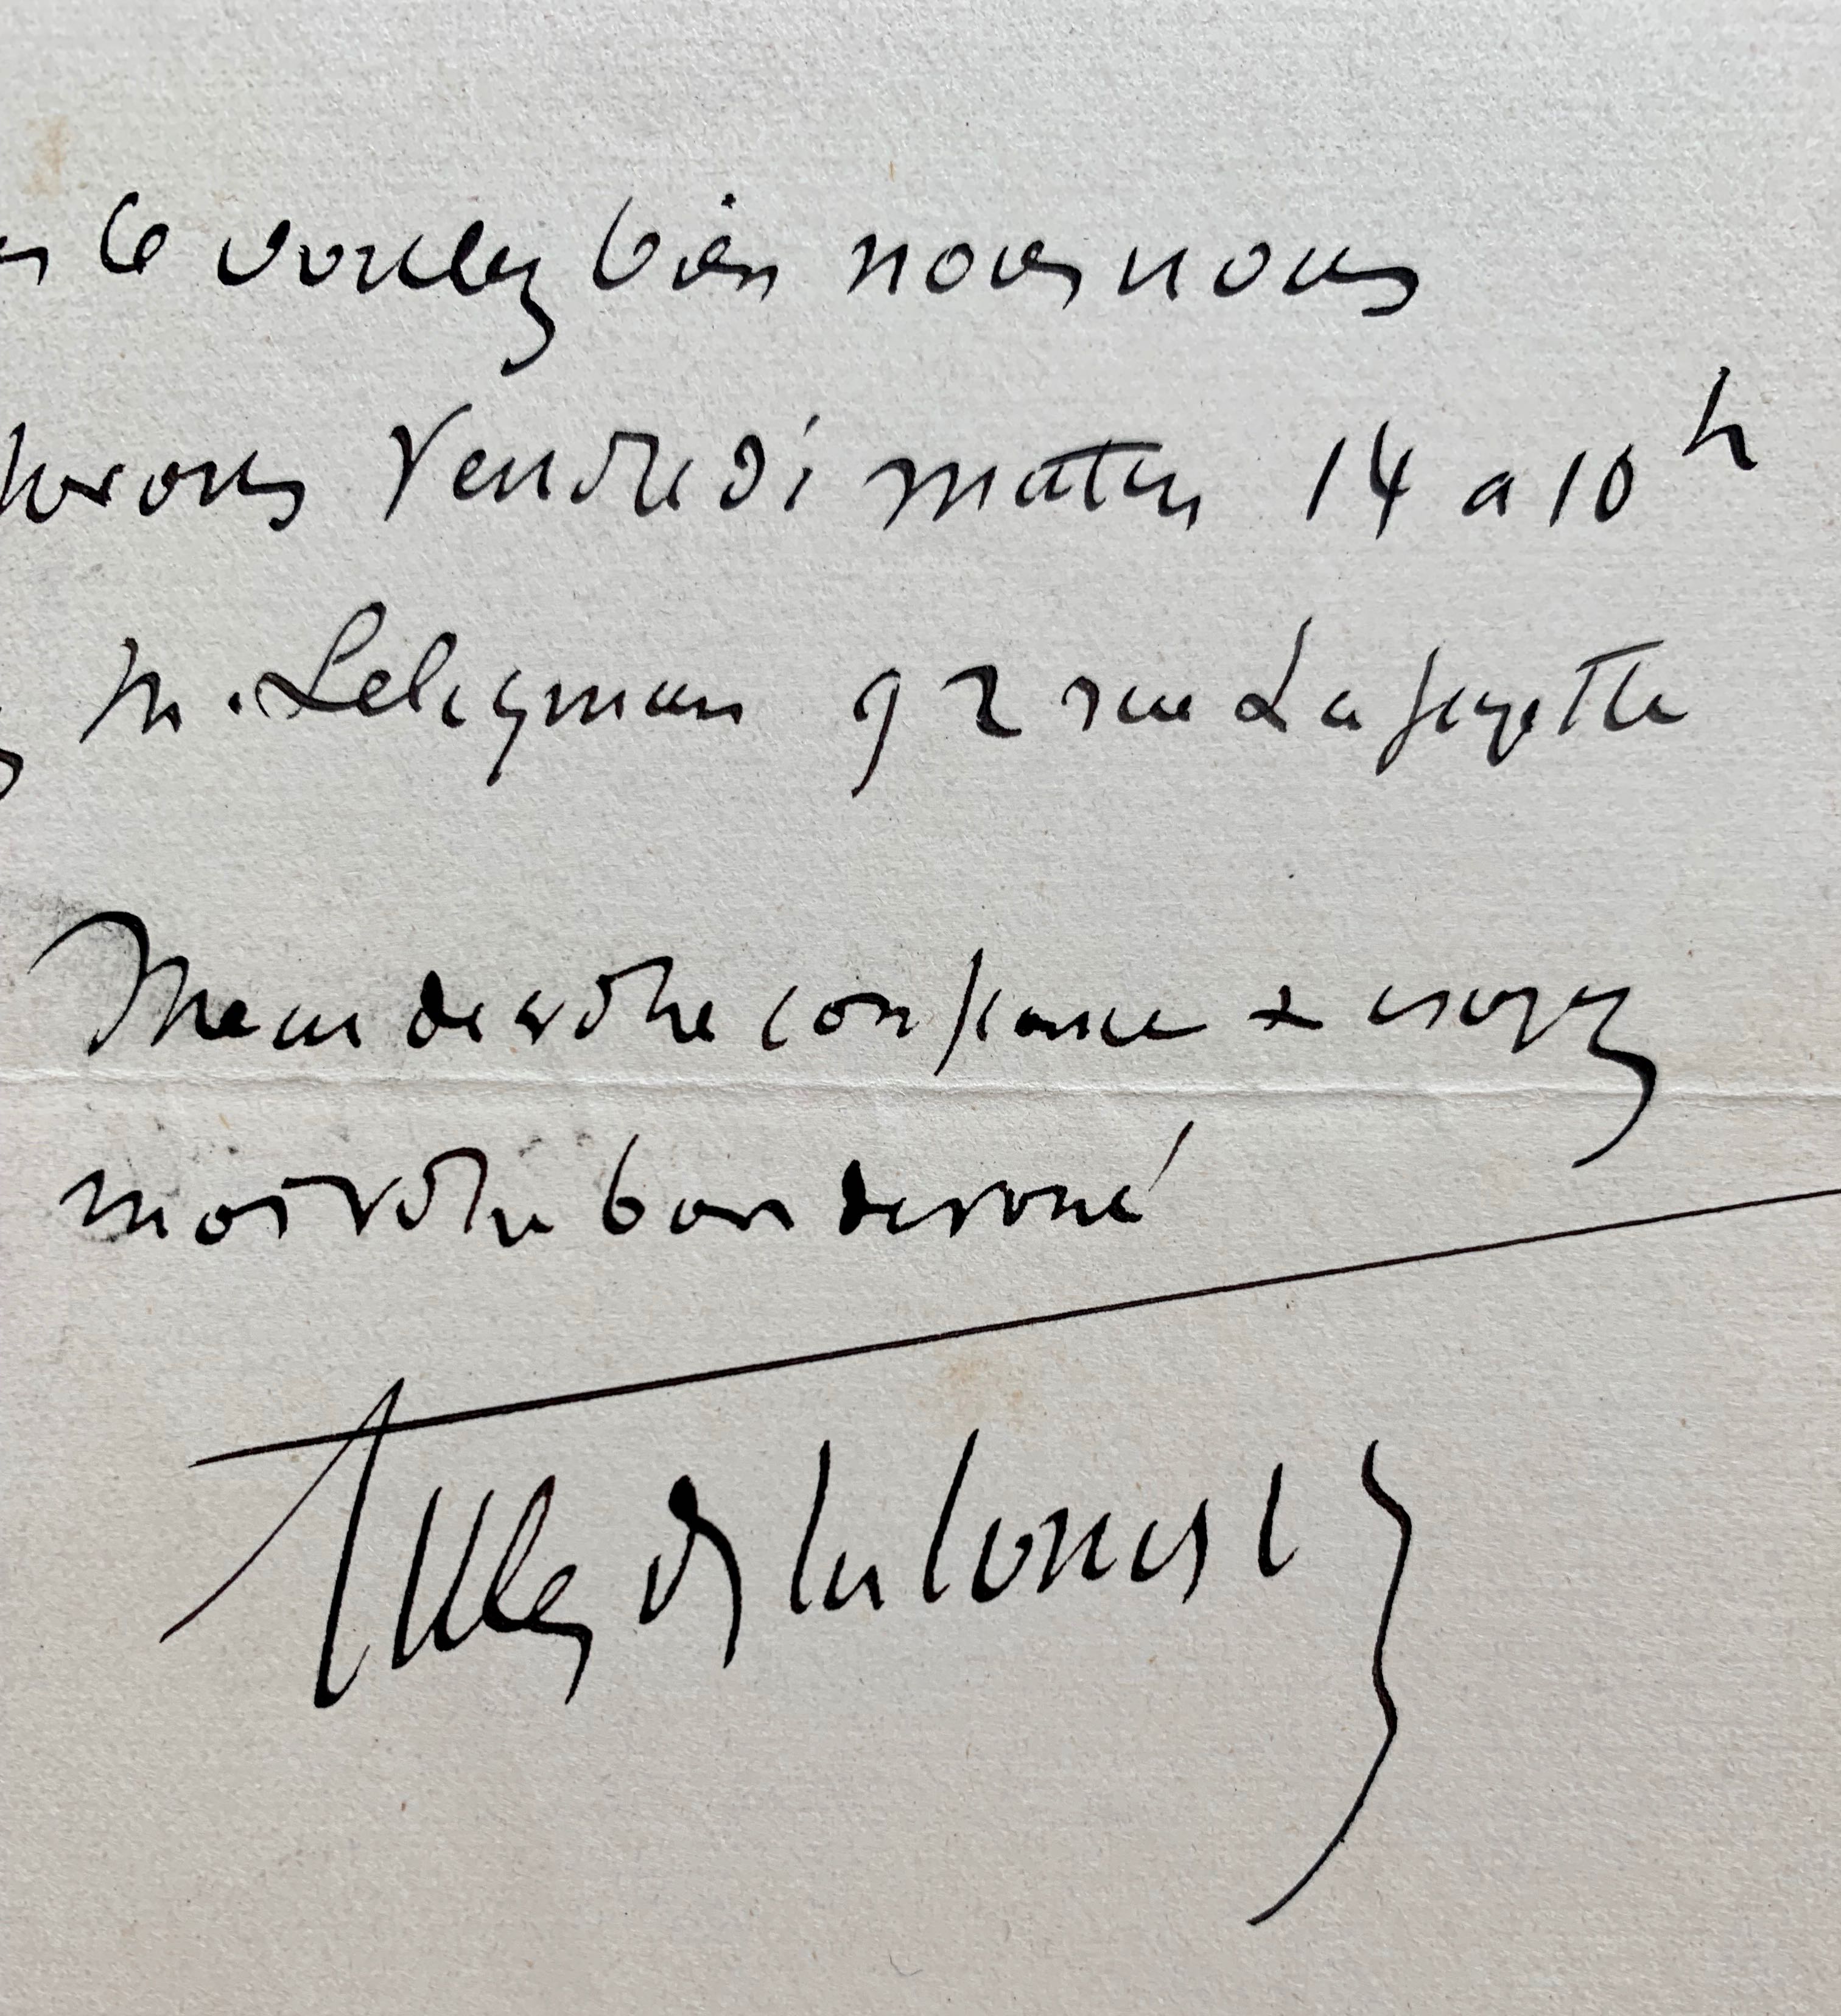 le voulez bien nous nous
Vendredi matin 14 a 10h
M. Seligman 92 rue Lafayette
Merci de votre confiance & croyez
moi votre bien devoué